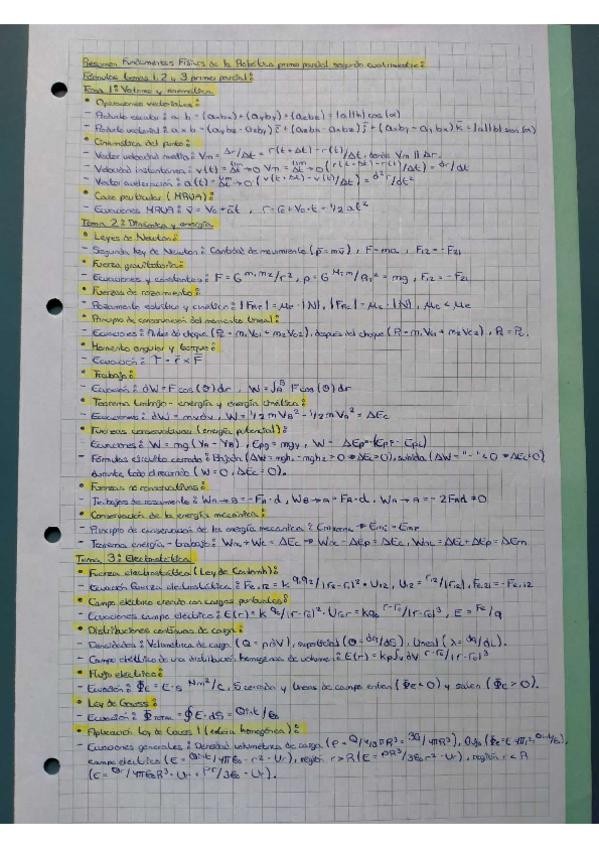 Resumen Fundamentos Físicos de la Robótica primer parcial segundo cuatrimestre:
Fórmulas temas 1, 2 y 3 primer parcial:
Tema 1: Volumen y cinemática
• Operaciones vectoriales:
- Producto escalar: a · b = (axbx) + (ayby) + (azbz) = |a||b| cos(α)
- Producto vectorial: a × b = (aybz - azby) i + (azbx - axbz) j + (axby - aybx) k = |a||b| sen(α)
• Cinemática del punto:
- Vector velocidad media: Vm = Δr/Δt = r(t+Δt) - r(t)/Δt, donde Vm || Δr.
- Velocidad instantánea: v(t) = lim Δt→0 Vm = lim Δt→0 (r(t+Δt) - r(t)/Δt) = dr/dt
- Vector aceleración: a(t) = lim Δt→0 (v(t+Δt) - v(t)/Δt) = d²r/dt²
• Caso particular (MRUA):
- Ecuaciones MRUA: v = v0 + at, r = r0 + V0·t + 1/2 at²
Tema 2: Dinámica y energía
• Leyes de Newton:
- Segunda ley de Newton: Cantidad de movimiento (p = mv), F = ma, F12 = -F21
• Fuerza gravitatoria:
- Ecuaciones y constantes: F = G m1m2/r², p = G MTm/RT² = mg, F12 = -F21
• Fuerzas de rozamiento:
- Rozamiento estático y cinético: |FRe| = μe · |N|, |FRc| = μc · |N|, μc < μe
• Principio de conservación del momento lineal:
- Ecuaciones: Antes del choque (Pi = m1V1i + m2V2i), después del choque (Pf = m1V1f + m2V2f), Pi = Pf.
• Momento angular y torque:
- Ecuación: τ = r × F
• Trabajo:
- Ecuación: dW = F cos(θ) dr, W = ∫AB F cos(θ) dr
• Teorema trabajo - energía y energía cinética:
- Ecuaciones: dW = mvdv, W = 1/2 m VB² - 1/2 m VA² = ΔEc
• Fuerzas conservativas (energía potencial):
- Ecuaciones: W = mg(YA - YB), Epg = mgy, W = -ΔEp = -(Epf - Epi)
- Fórmulas circuito cerrado: Bajada (ΔW = mgh1 - mgh2 > 0 → ΔEc > 0), subida (ΔW = "-" < 0 → ΔEc < 0)
durante todo el recorrido (W = 0, ΔEc = 0).
• Fuerzas no conservativas:
- Trabajos de rozamiento: WA→B = -FR·d, WB→A = -FR·d, WA→A = -2FRd ≠ 0
• Conservación de la energía mecánica:
- Principio de conservación de la energía mecánica:
- Teorema energía - trabajo: Wnc + Wc = ΔEc → Wnc - ΔEp = ΔEc, Wnc = ΔEc + ΔEp = ΔEm
Tema 3: Electrostática
• Fuerza electrostática (Ley de Coulomb):
- Ecuación fuerza electrostática: Fe,12 = k q1q2/|r2-r1|² · U12, U12 = r12/|r12|, Fe,21 = -Fe,12
• Campo eléctrico creado con cargas puntuales:
- Ecuaciones campo eléctrico:
• Distribuciones continuas de carga:
- Densidades: Volumétrica de carga (Q = ρdV), superficial (σ = dq/dS), lineal (λ = dq/dL).
- Campo eléctrico de una distribución homogénea de volumen:
• Flujo eléctrico:
- Ecuación: ΦE = E·S Nm²/C, S cerrada y líneas de campo entran (ΦE < 0) y salen (ΦE > 0).
• Ley de Gauss:
- Ecuación: ΦTOTAL = ∮E·dS = Qint/ε0
• Aplicación Ley de Gauss 1 (esfera homogénea):
- Ecuaciones generales: Densidad volumétrica de carga (ρ = Q/4/3πR³ = 3Q/4πR³), flujo
campo eléctrico (E = Qint/4πε0·r² · Ur), región r > R (E = ρR³/3ε0·r² · Ur), región r < R
(E = Qr/4πε0R³ · Ur = ρr/3ε0 · Ur).